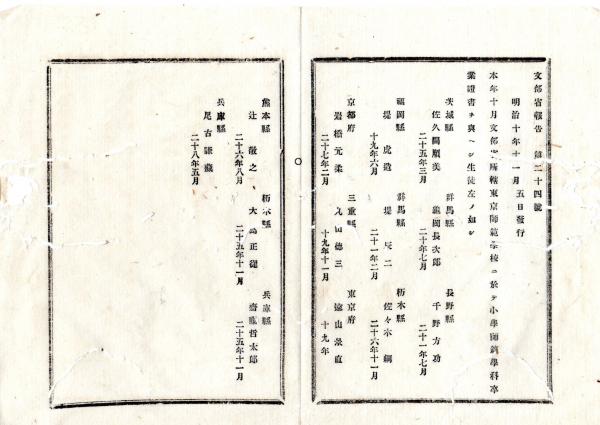 文部省報告 第二十四號
明治十年十一月五日發行
本年十月文部省所轄東京師範學校ニ於テ小學師範學科卒
業證書ヲ與ヘシ生徒左ノ如シ
茨城縣 群馬縣 長野縣
佐久間順美 龜岡長次郎 千野方功
二十五年三月 二十年七月 二十一年七月
福岡縣 群馬縣 栃木縣
堤虎造 堤辰二 佐々木綱
十九年六月 二十一年二月 二十六年十一月
京都府 三重縣 東京府
岩橋元柔 德三 遠山景直
二十七年二月 十九年十一月 十九年
熊本縣 栃木縣 兵庫縣
辻敬之 大島正健 齋藤哲太郎
二十六年八月 二十五年十一月 二十五年十一月
兵庫縣
尾古謙藏
二十八年五月